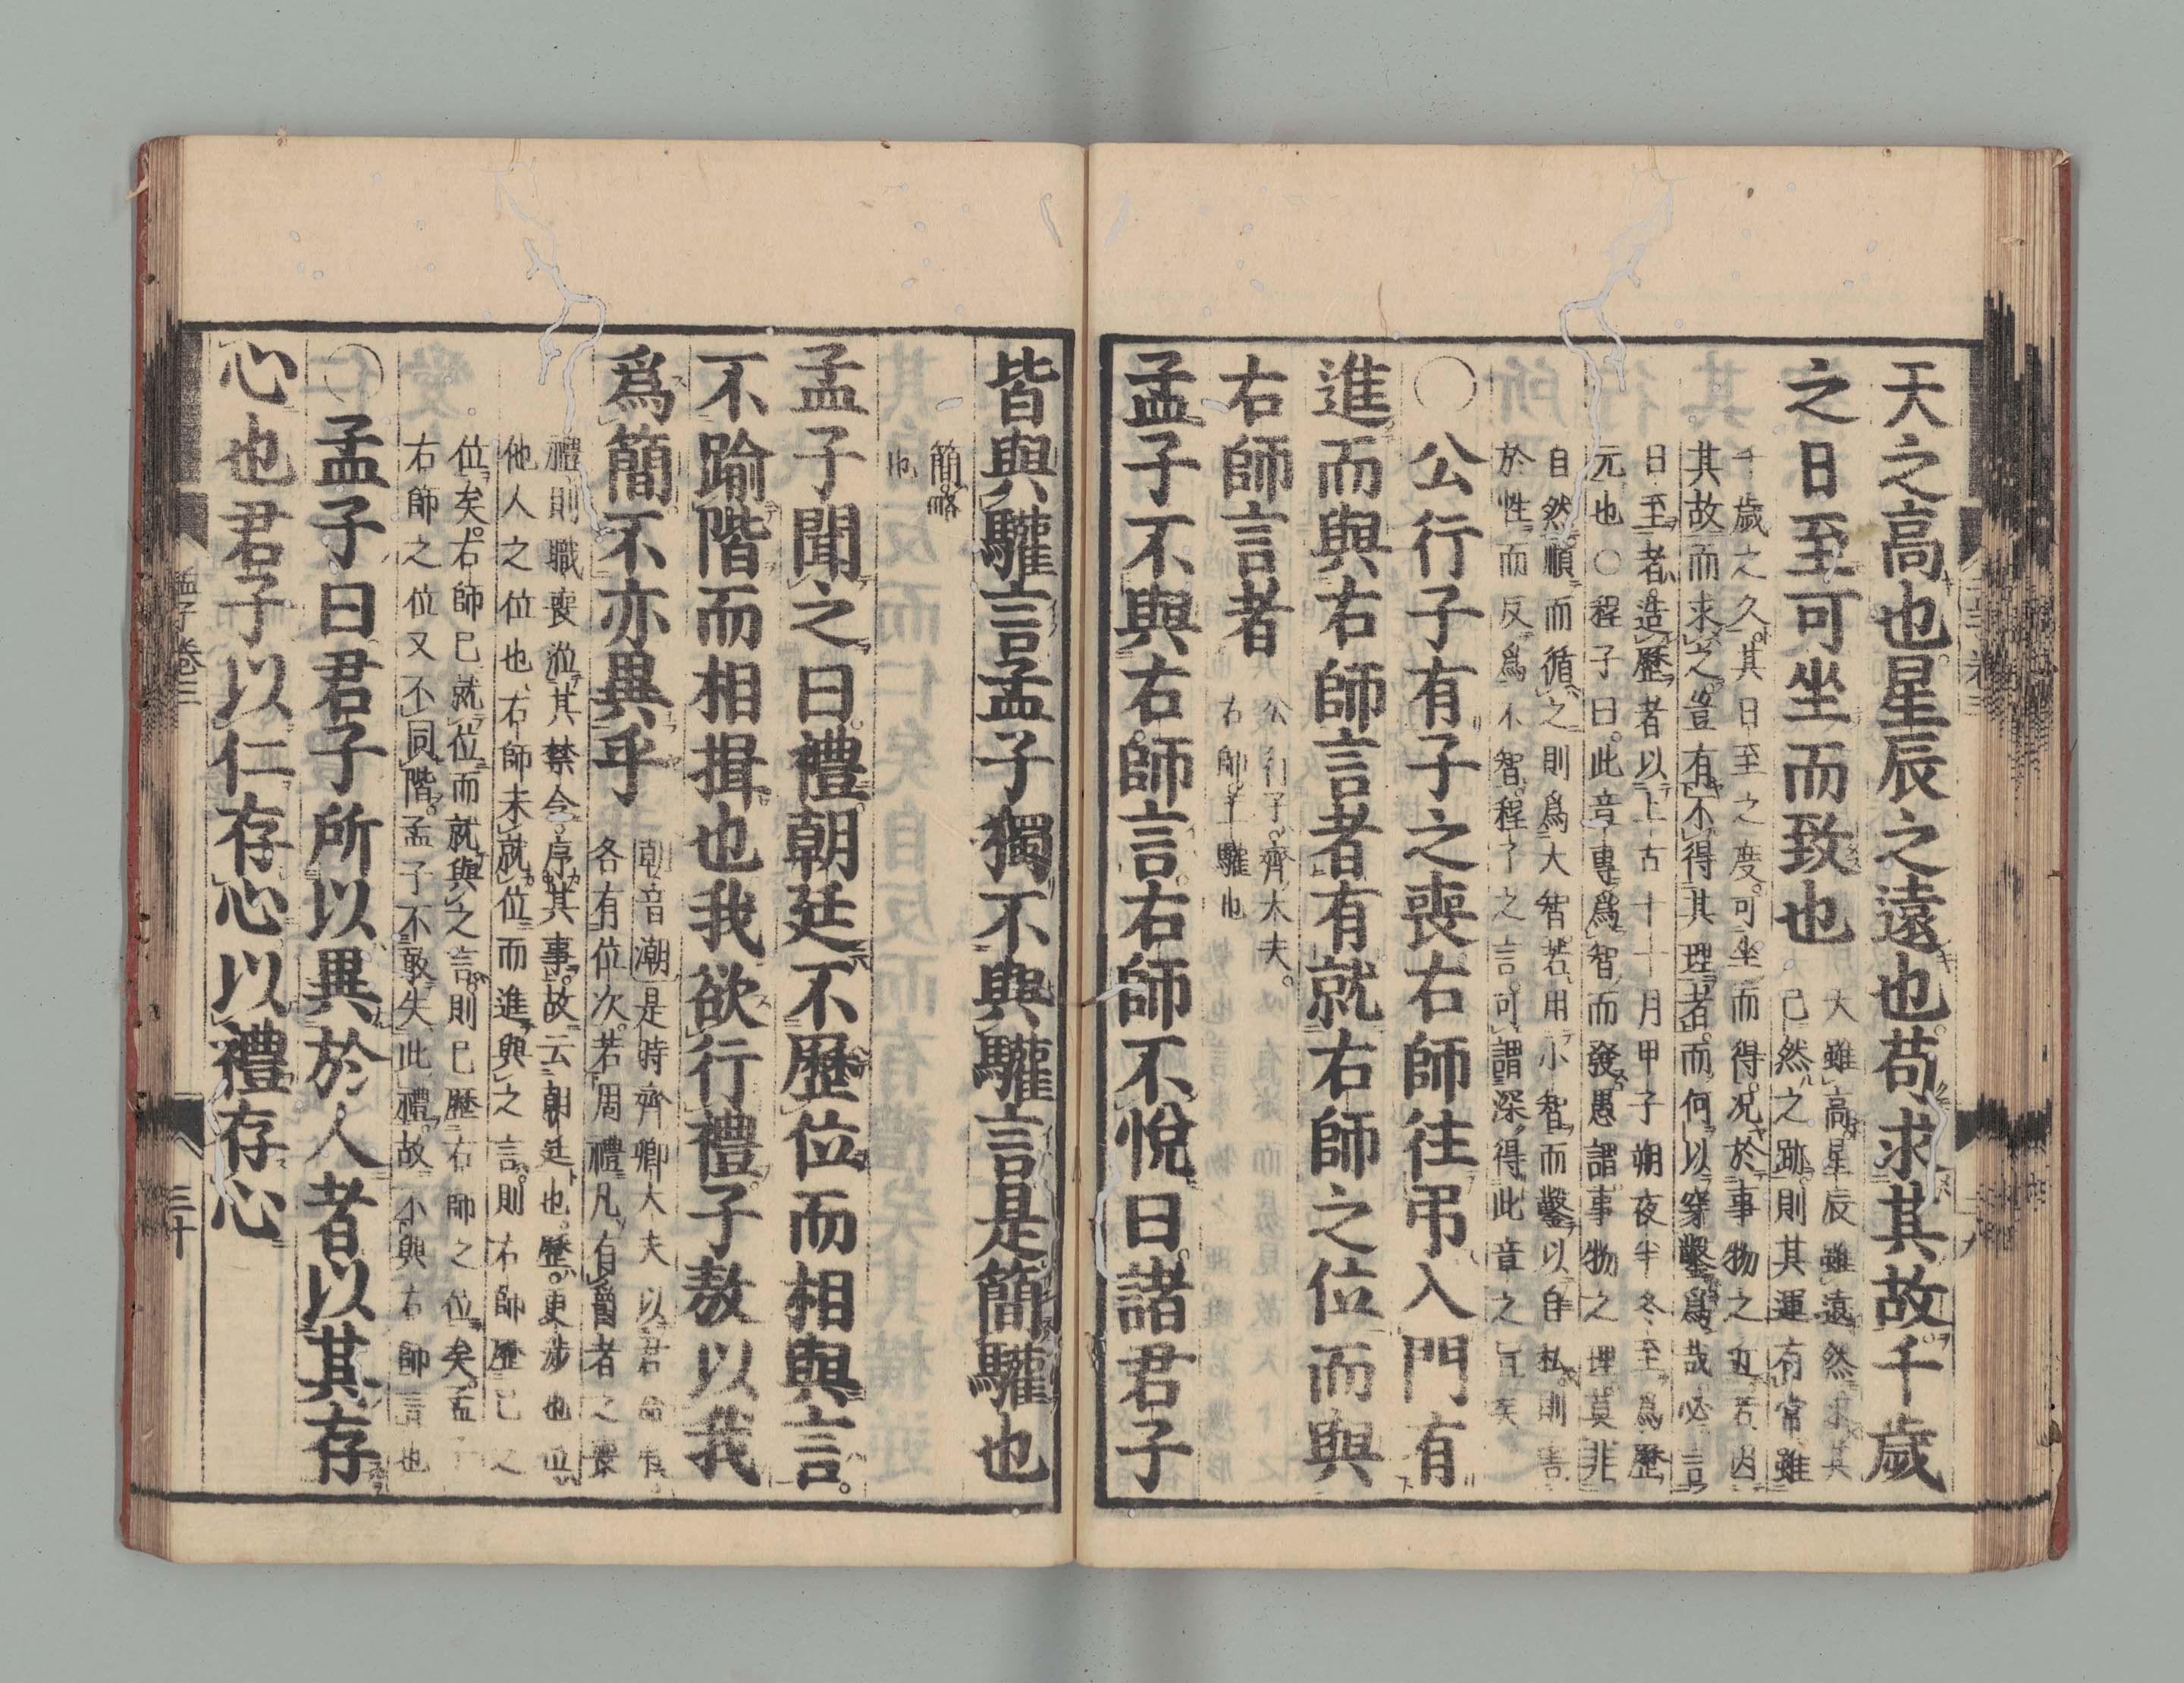 天之高也星辰之遠也苟求其故千歲
之日至可坐而致也
天雖高星辰雖遠然求其
已然之跡則其運有常雖
千歲之久其日至之度可坐而得况於事物之近若因
其故而求之豈有不得其理者而何以穿鑿爲哉必言
日至者造歷者以上古十一月甲子朔夜半冬至爲歷
元也○程子曰此章專爲智而發愚謂事物之理莫非
自然順而循之則爲大智若用小智而鑿以自私則害
於性而反爲不智程子之言可謂深得此章之旨矣
○公行子有子之喪右師往弔入門有
進而與右師言者有就右師之位而與
右師言者
公行子齊大夫
右師王驩也
孟子不與右師言右師不悅曰諸君子
皆與驩言孟子獨不與驩言是簡驩也
簡略
也
孟子聞之曰禮朝廷不歷位而相與言
不踰階而相揖也我欲行禮子敖以我
爲簡不亦異乎
朝音潮是時齊卿大夫以君命弔
各有位次若周禮凡有爵者之喪
禮則職喪涖其禁令序其事故云朝廷也歷更涉也位
他人之位也右師未就位而進與之言則右師歷已之
位矣右師已就位而就與之言則已歷右師之位矣孟子
右師之位又不同階孟子不敢失此禮故不與右師言也
○孟子曰君子所以異於人者以其存
心也君子以仁存心以禮存心
孟子卷三
三十